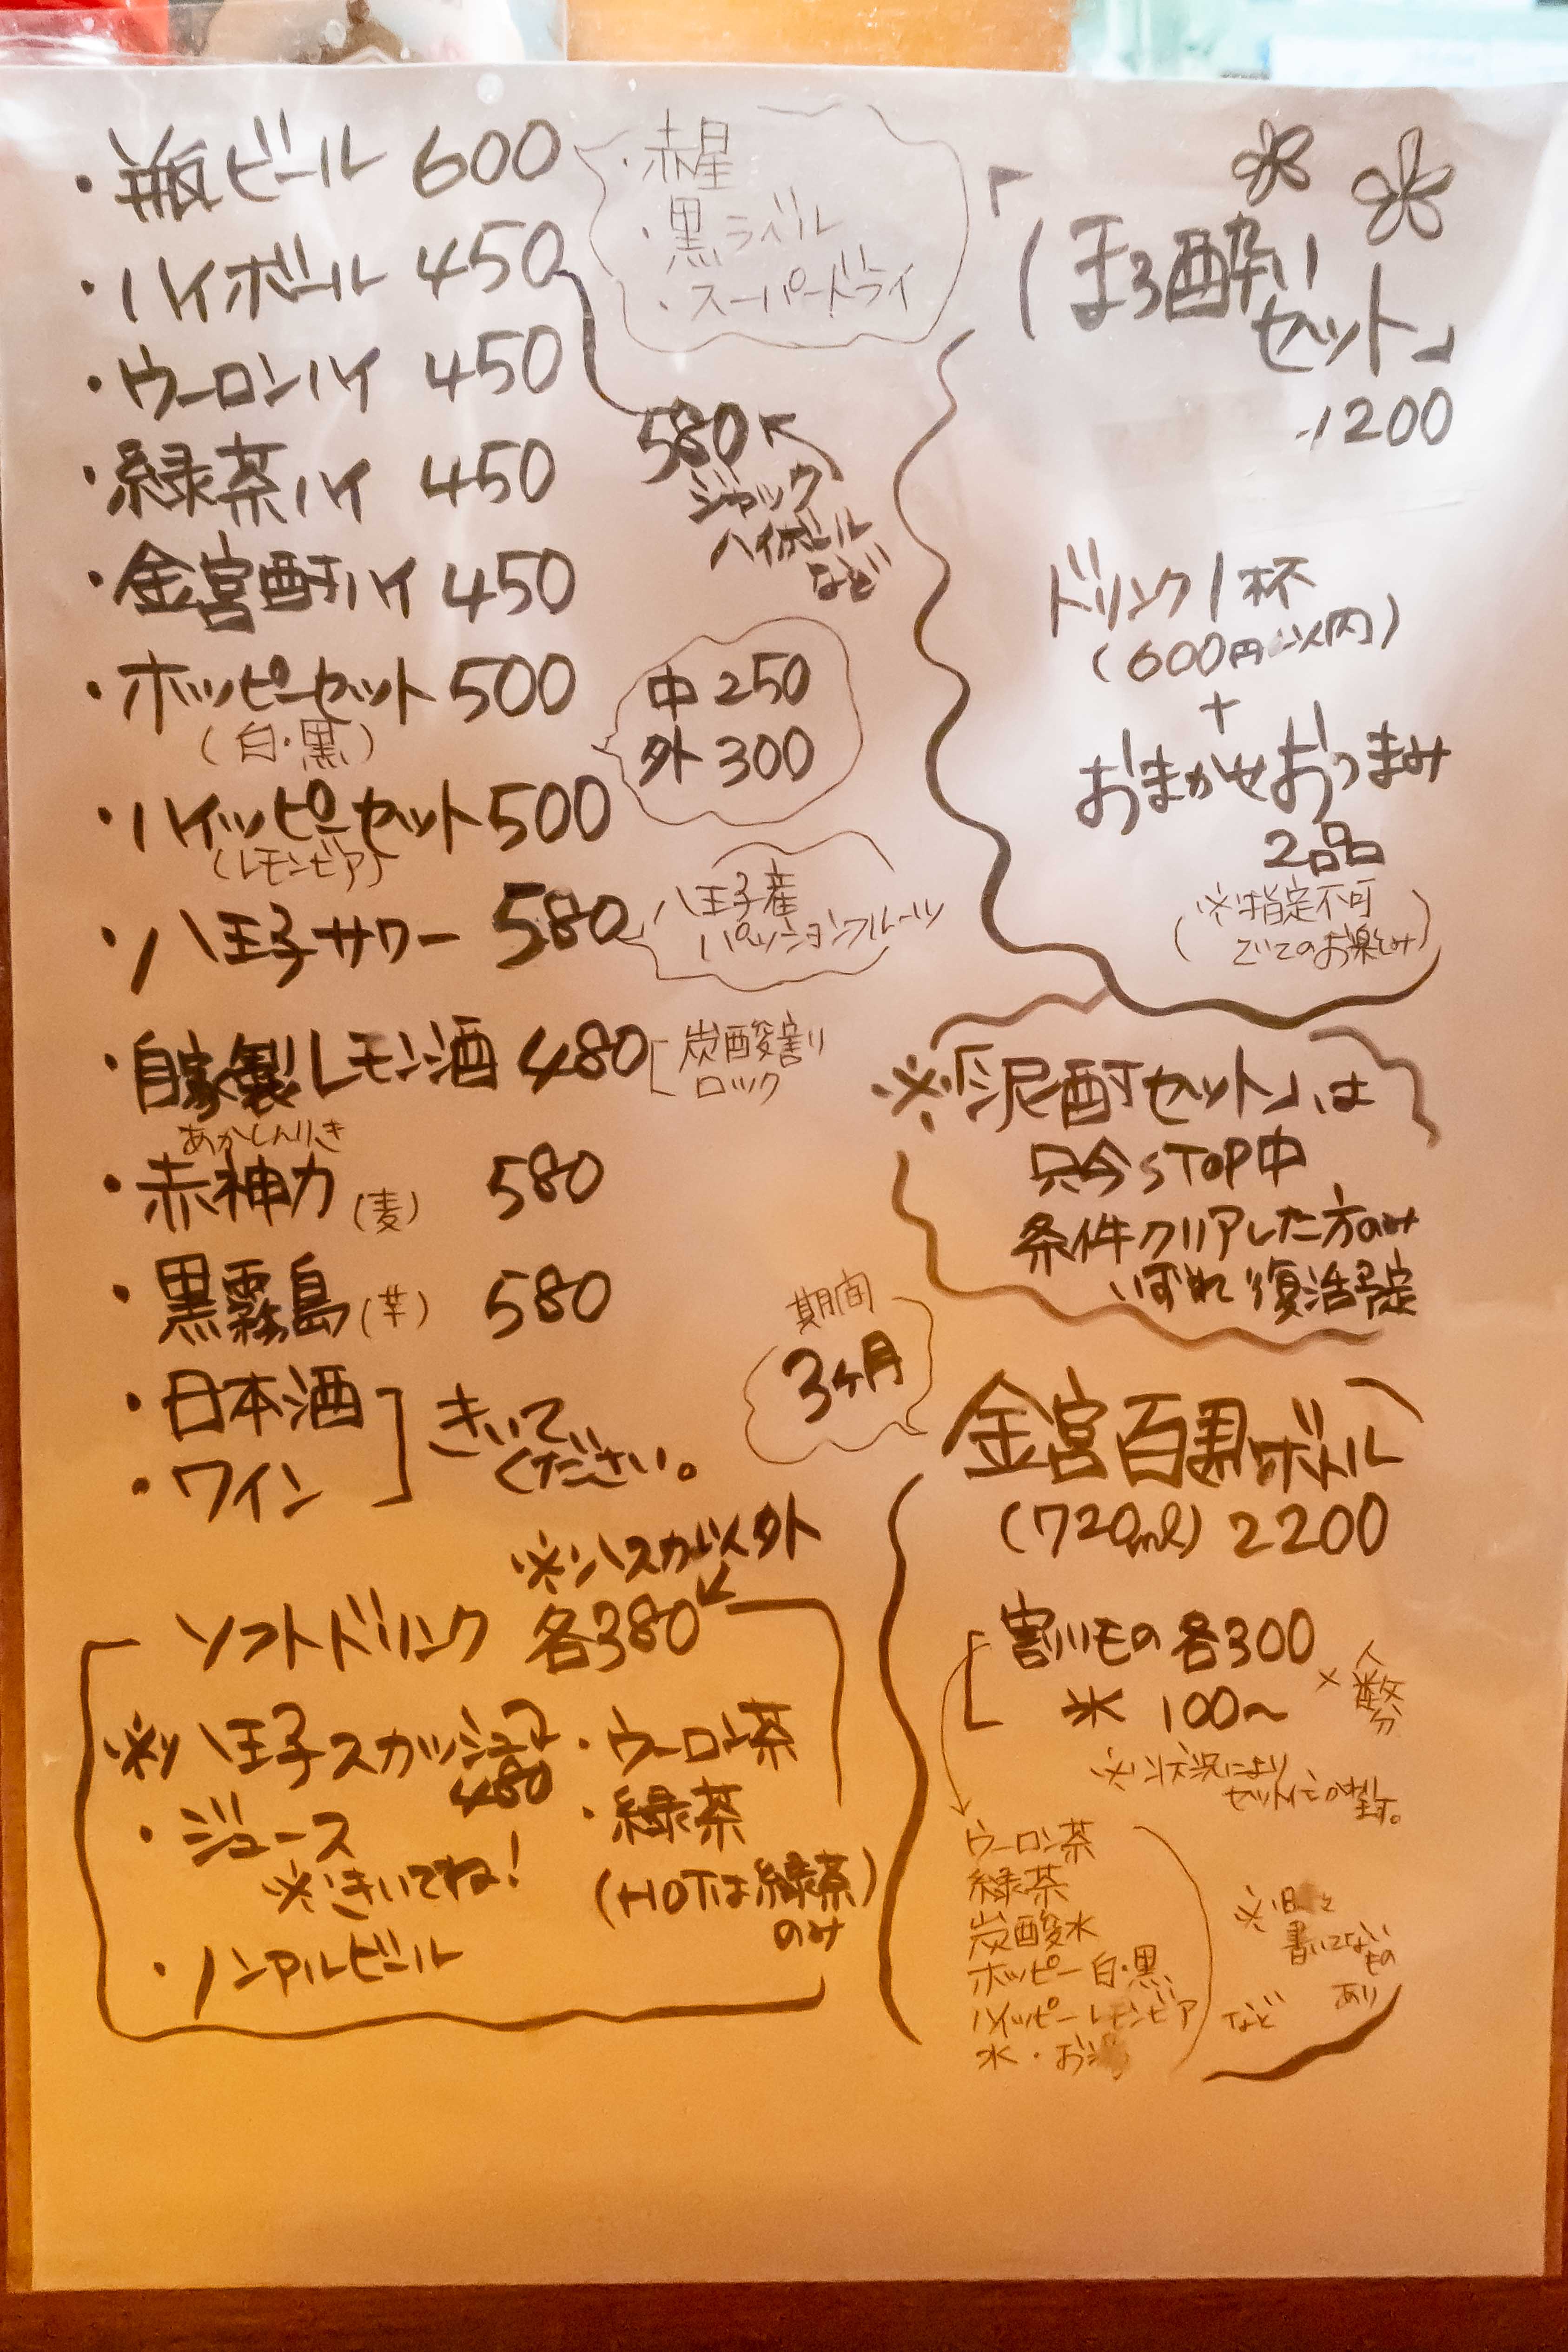 ・瓶ビール 600
・赤星
・黒ラベル
・スーパードライ
・ハイボール 450
580
ジャック
ハイボール
など
・ウーロンハイ 450
・緑茶ハイ 450
・金宮酎ハイ 450
・ホッピーセット 500
(白・黒)
中 250
外 300
・ハイッピーセット 500
(レモンビア)
・八王子サワー 580
八王子産
パッションフルーツ
・自家製レモン酒 480
炭酸割り
ロック
あかしんりき
・赤神力(麦) 580
・黒霧島(芋) 580
・日本酒
・ワイン
きいて
ください。
※ハスカ以外
ソフトドリンク 各380
※八王子スカッシュ
480
・ジュース
※きいてね!
・ノンアルビール
・ウーロン茶
・緑茶
(HOTは緑茶)
のみ
「ほろ酔い
セット」
1200
ドリンク1杯
(600円以内)
+
おまかせおつまみ
2品
(※指定不可
でてのお楽しみ)
※「泥酎セット」は
只今STOP中
条件クリアした方のみ
いずれ復活予定
期間
3ヶ月
金宮 百君ボトル
(720ml) 2200
割りもの 各300
氷 100〜
×人数分
※状況により
ウーロン茶
緑茶
炭酸水
ホッピー白・黒
ハイッピーレモンビア
水・お湯
など
書いてない
もの
あり